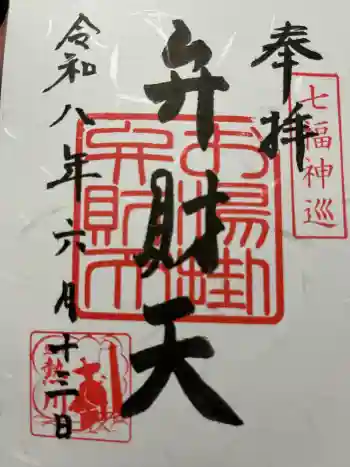 奉拝
七福神巡
弁財天
お湯掛
弁財天
令和八年六月十三日
熱川